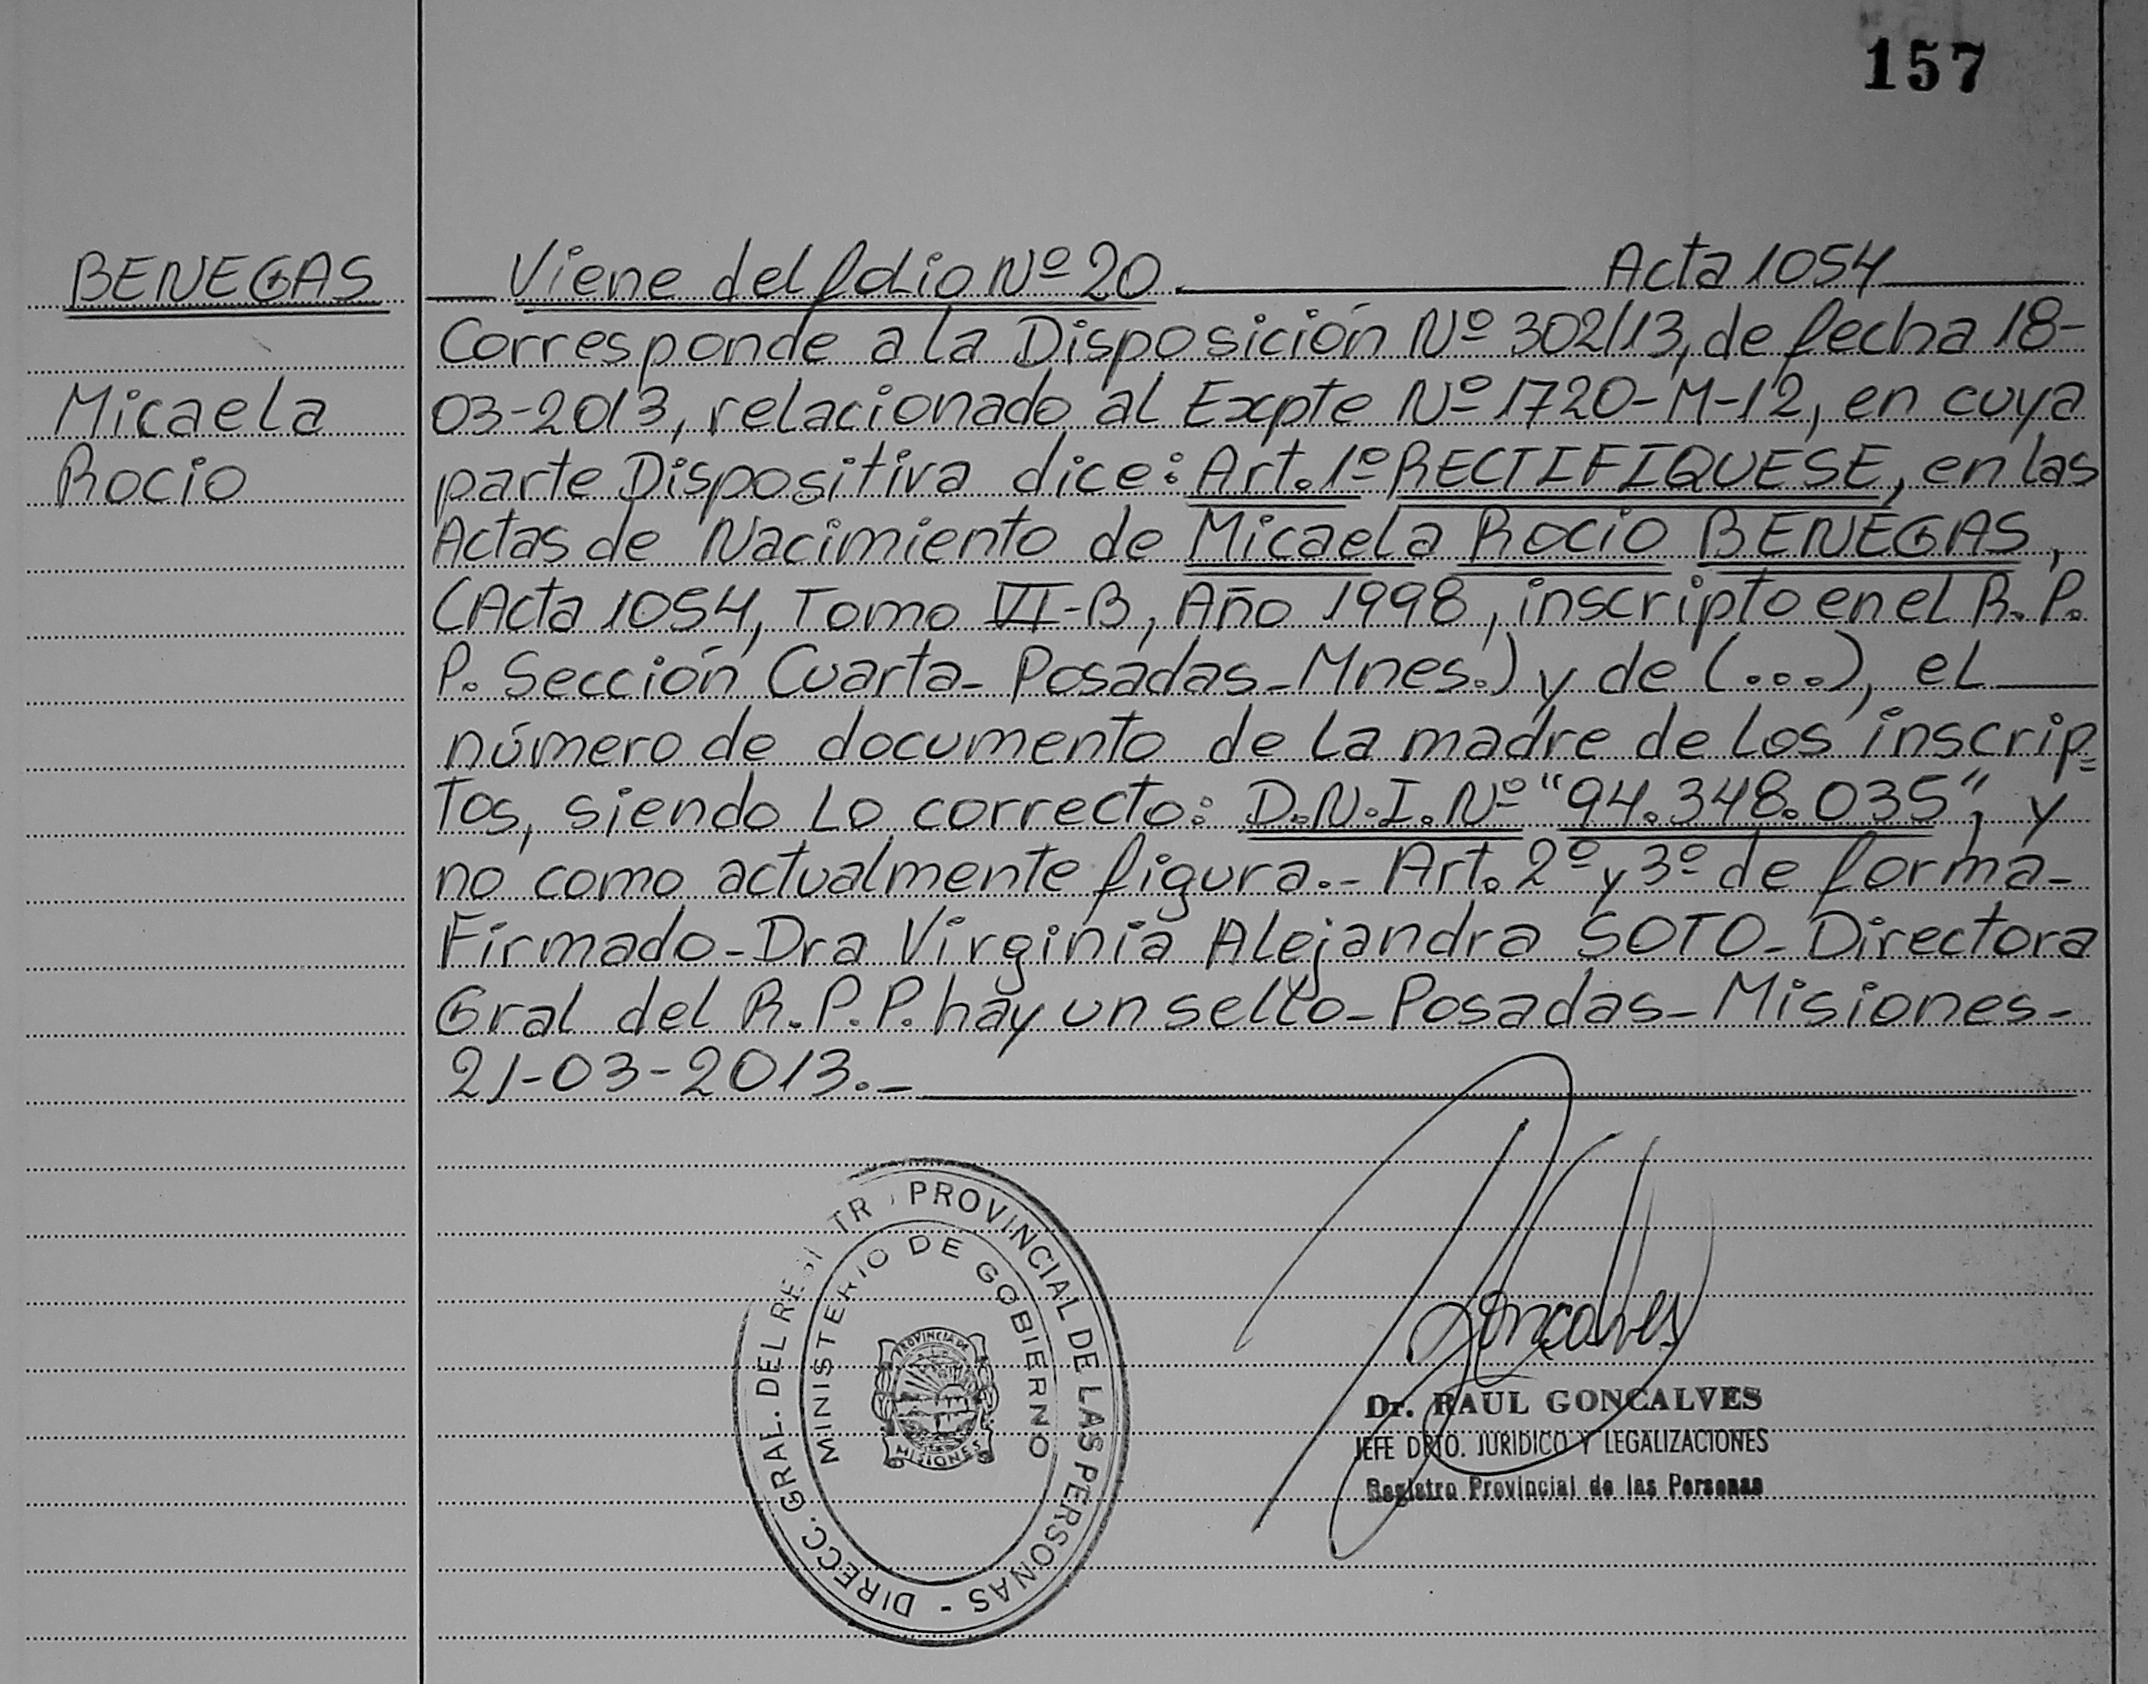 157
BENEGAS
Micaela
Rocio
Viene del folio Nº 20. Acta 1054
Corresponde a la Disposición Nº 302/13, de fecha 18-
03-2013, relacionado al Expte Nº 1720-M-12, en cuya
parte Dispositiva dice: Art. 1º RECTIFIQUESE, en las
Actas de Nacimiento de Micaela Rocio BENEGAS,
(Acta 1054, Tomo VI-B, Año 1998, inscripto en el R.P.
P. Sección Cuarta- Posadas-Mnes.) y de (...), el
número de documento de la madre de los inscrip=
tos, siendo lo correcto: D.N.I. Nº "94.348.035", y
no como actualmente figura.- Art. 2º y 3º de forma-
Firmado-Dra Virginia Alejandra SOTO-Directora
Gral del R.P.P. hay un sello-Posadas-Misiones-
21-03-2013.-
DIRECC. GRAL. DEL REGI TR PROVINCIAL DE LAS PERSONAS -
MINISTERIO DE GOBIERNO
PROVINCIA DE
MISIONES
Goncalves
Dr. RAUL GONCALVES
JEFE DPTO. JURIDICO Y LEGALIZACIONES
Registro Provincial de las Personas